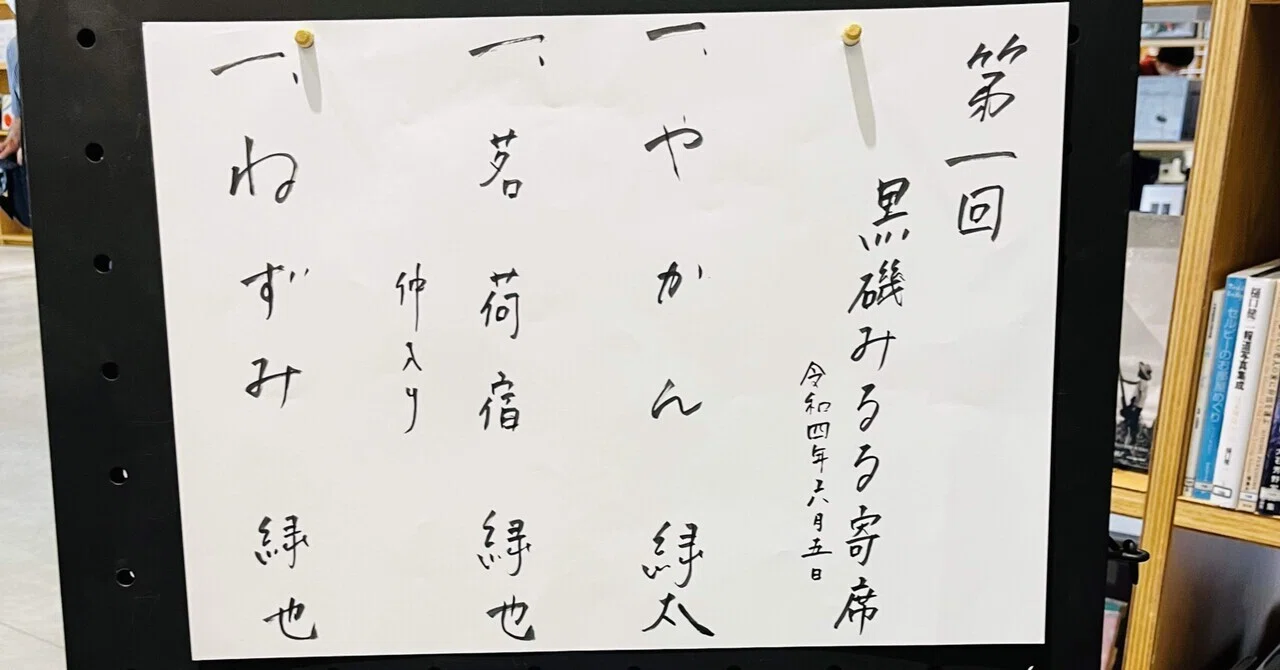 第一回
黒磯みるる寄席
令和四年六月五日
一、やかん 緑太
一、茗荷宿 緑也
仲入り
一、ねずみ 緑也
樋口健二報道写真集成
セルビーのお部屋めぐり